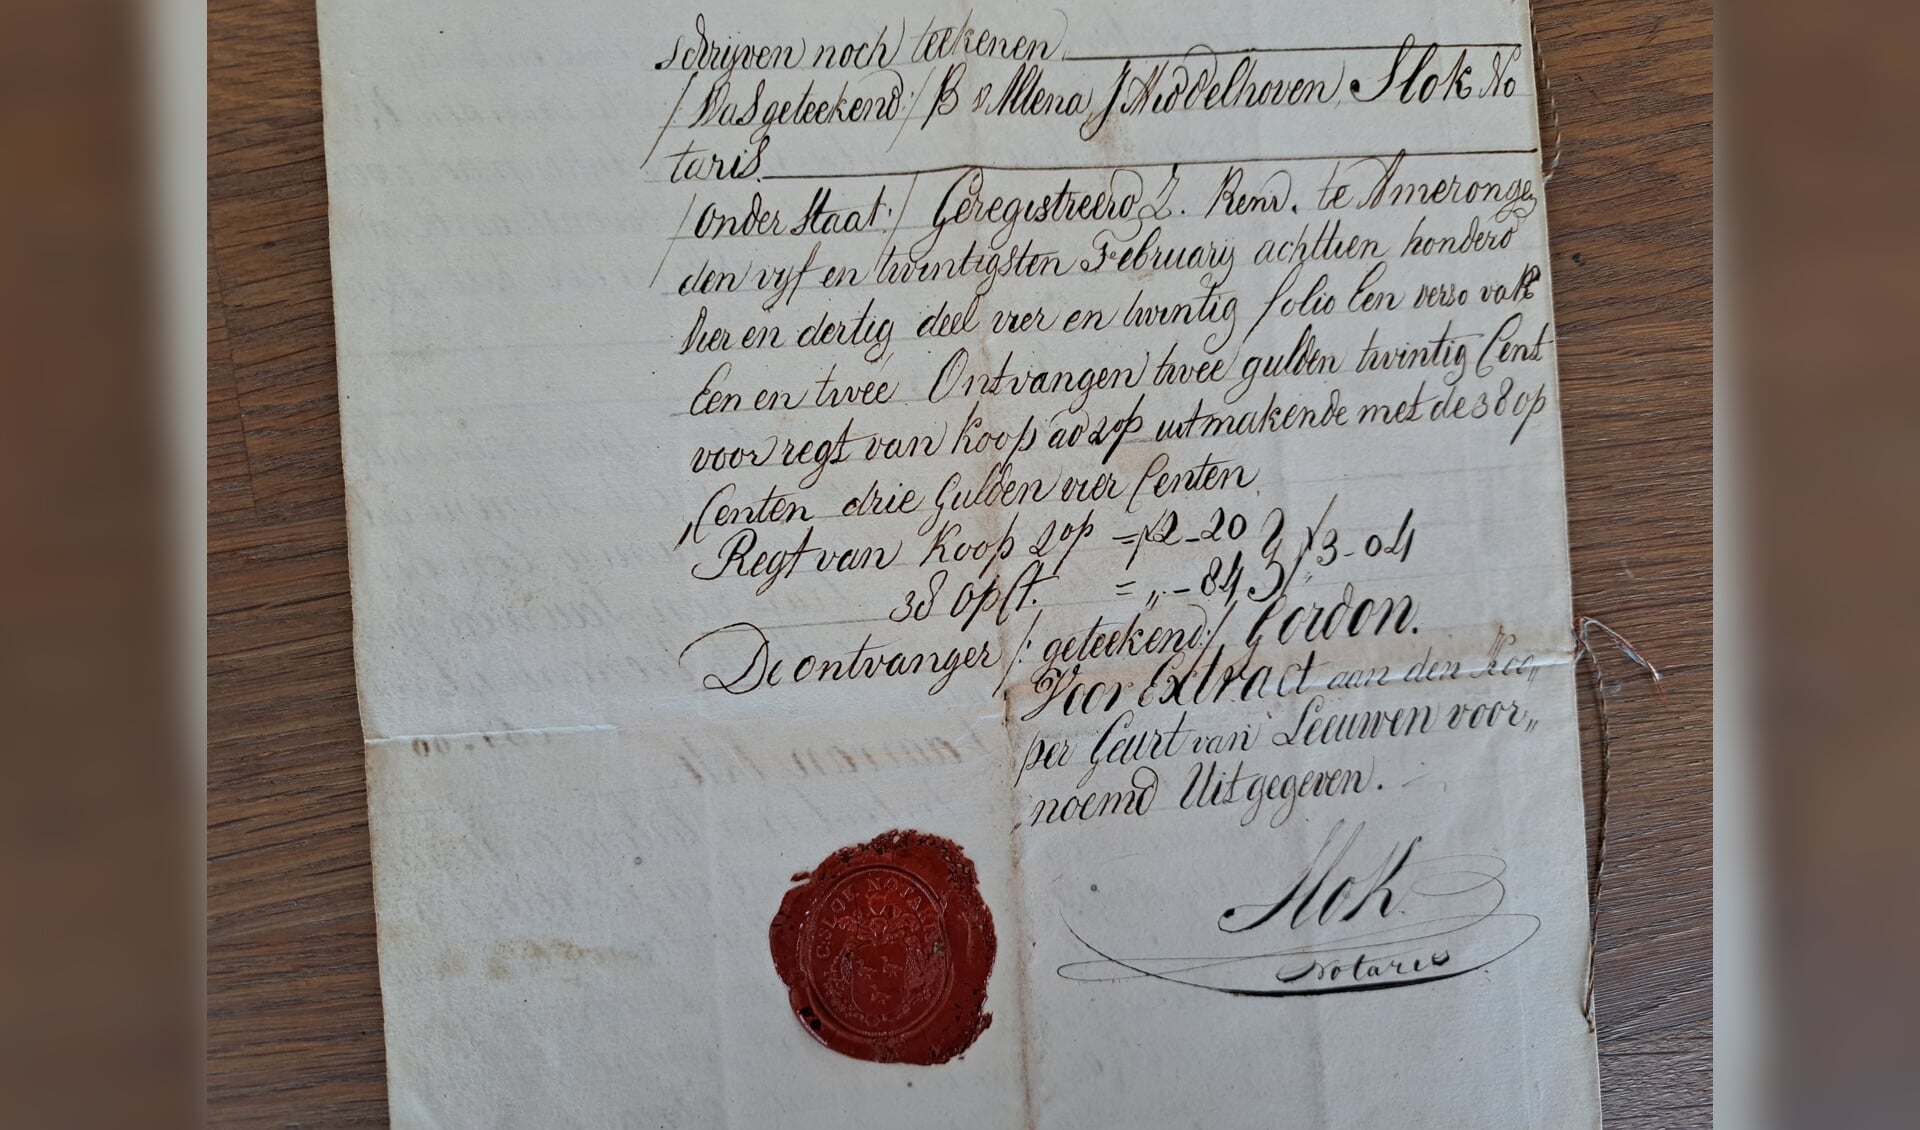 schrijven noch teekenen
/Was geteekend:/ B v Altena, J Middelhoven, Slok No
taris.
/onder Staat:/ Geregistreerd Z. Renv. te Amerongen
den vyf en twintigsten Februarij achttien honderd
vier en dertig deel vier en twintig folio Een verso vak
Een en twee. Ontvangen twee gulden twintig Cent
voor regt van Koop ad 2 op uitmakende met de 38 op
Centen drie Gulden vier Centen
Regt van Koop 2 op = f 2-20
38 op Ct. = „-84 } f 3-04
De ontvanger /: geteekend:/ Gordon.
Voor Extract aan den Koo„
per Geurt van Leeuwen voor„
noemd Uitgegeven.
Slok
Notaris
C. SLOK NOTARIS